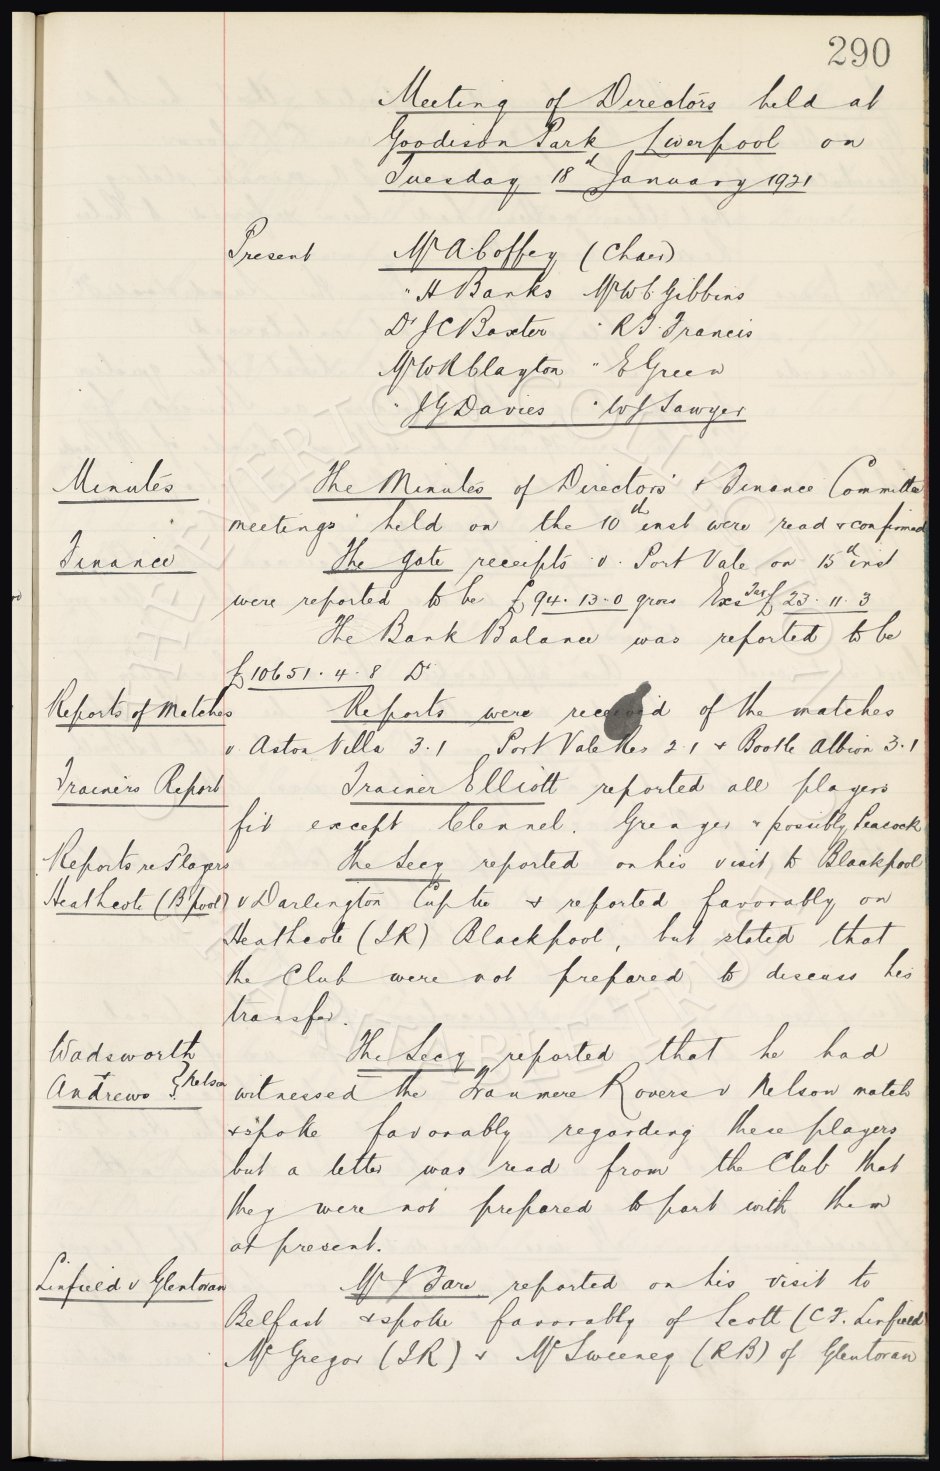 290
Meeting of Directors held at
Goodison Park Liverpool on
Tuesday 18th January 1921
Present Mr A Coffey (Chair)
" H Banks Mr W C Gibbins
Dr J C Baxter " R T Francis
Mr W R Clayton " E Green
" J G Davies " W J Sawyer
Minutes The Minutes of Directors' & Finance Committee
meetings held on the 10th inst were read & confirmed
Finance The gate receipts v. Port Vale on 15th inst
were reported to be £94.13.0 gross Exs £23.11.3
The Bank Balance was reported to be
£10651.4.8 Dr
Reports of Matches Reports were received of the matches
v Aston Villa 3.1 Port Vale Res 2.1 & Bootle Albion 3.1
Trainers Report Trainer Elliott reported all players
fit except Clennel. Grenyer & possibly Peacock
Reports re Players The Secy reported on his visit to Blackpool
Heathcote (B'pool) v Darlington Cup tie & reported favorably on
Heathcote (IR) Blackpool, but stated that
the Club were not prepared to discuss his
transfer.
Wadsworth The Secy reported that he had
& Andrews } Nelson witnessed the Tranmere Rovers v Nelson match
& spoke favorably regarding these players
but a letter was read from the Club that
they were not prepared to part with them
at present.
Linfield v Glentoran Mr J Fare reported on his visit to
Belfast & spoke favorably of Scott (C F. Linfield)
McGregor (IR) & McSweeney (RB) of Glentoran